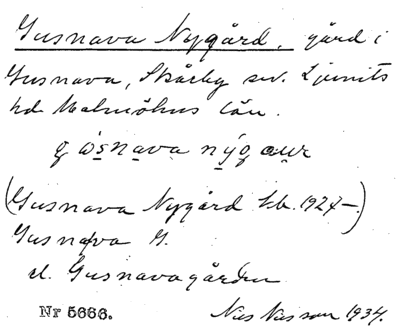 Gusnava Nygård, gård i
Gusnava, Skårby sn. Ljunits
hd Malmöhus län.
(Gusnava Nygård kb. 1924–.)
Gusnava G.
el. Gusnavagården
Nr 5666. Nils Nilsson 1934.